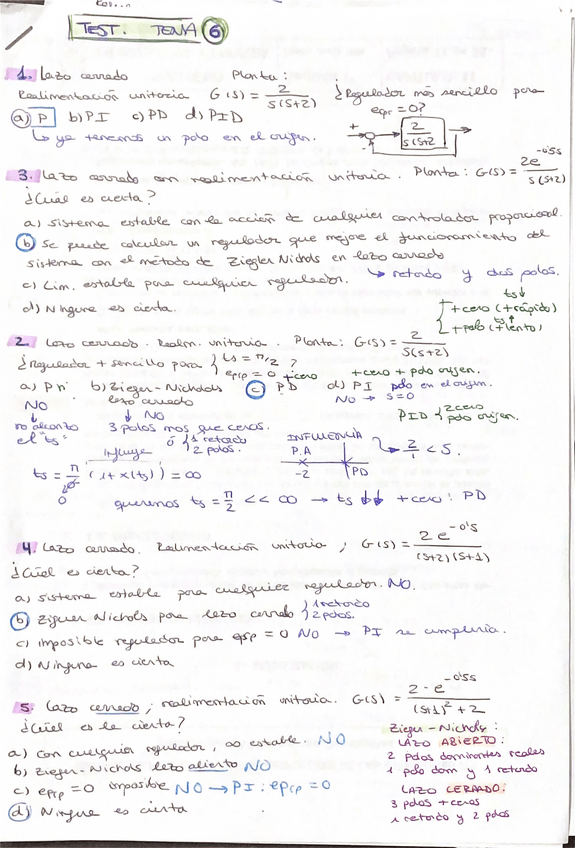 TEST. TEMA 6
1. Lazo cerrado Planta:
Realimentación unitaria G(s) = 2/s(s+2) ¿Regulador más sencillo para
a) P b) PI c) PD d) PID epr = 0?
↳ ya tenemos un polo en el origen.
+ - 2/s(s+2)
3. Lazo cerrado con realimentación unitaria. Planta: G(s) = 2e^-0'5s/s(s+2)
¿Cuál es cierta?
a) sistema estable con la acción de cualquier controlador proporcional.
b) Se puede calcular un regulador que mejore el funcionamiento del
sistema con el método de Ziegler Nichols en lazo cerrado
↳ retardo y dos polos.
c) Lim. estable para cualquier regulador.
d) Ninguna es cierta.
ts↓
+cero (+rápido)
ts↑
+polo (+lento)
2. Lazo cerrado. Realm. unitaria. Planta: G(s) = 2/s(s+2)
¿Regulador + sencillo para { ts = π/2 ?
epcp = 0 +cero +cero + polo origen.
a) P b) Zieger-Nichols c) PD d) PI polo en el origen.
NO lazo cerrado NO → s=0
↓ ↓ NO PID { 2cero polo origen.
no alcanzo 3 polos mas que ceros.
el "ts" ó { 1 retardo 2 polos.
INFLUENCIA
P.A → 2/1 < 5.
-2 PD
influye
ts = π/0 (1+x(ts)) = ∞
queremos ts = π/2 << ∞ → ts ↓↓ +cero: PD
4. Lazo cerrado. Realimentación unitaria; G(s) = 2e^-0's/(s+2)(s+1)
¿Cuál es cierta?
a) sistema estable para cualquier regulador. NO.
b) Ziguer Nichols para lazo cerrado { 1 retardo 2 polos.
c) imposible regulador para epsp = 0 NO → PI se cumpliría.
d) Ninguna es cierta
5. Lazo cerrado, realimentación unitaria. G(s) = 2·e^-0'5s/(s+1)² + 2
¿Cuál es la cierta?
a) Con cualquier regulador, es estable. NO
b) Zieger-Nichols lazo abierto NO
c) epcp = 0 imposible NO → PI: epcp = 0
d) Ninguna es cierta
Zieger-Nichols:
LAZO ABIERTO:
2 polos dominantes reales
1 polo dom y 1 retardo
LAZO CERRADO:
3 polos + ceros
1 retardo y 2 polos